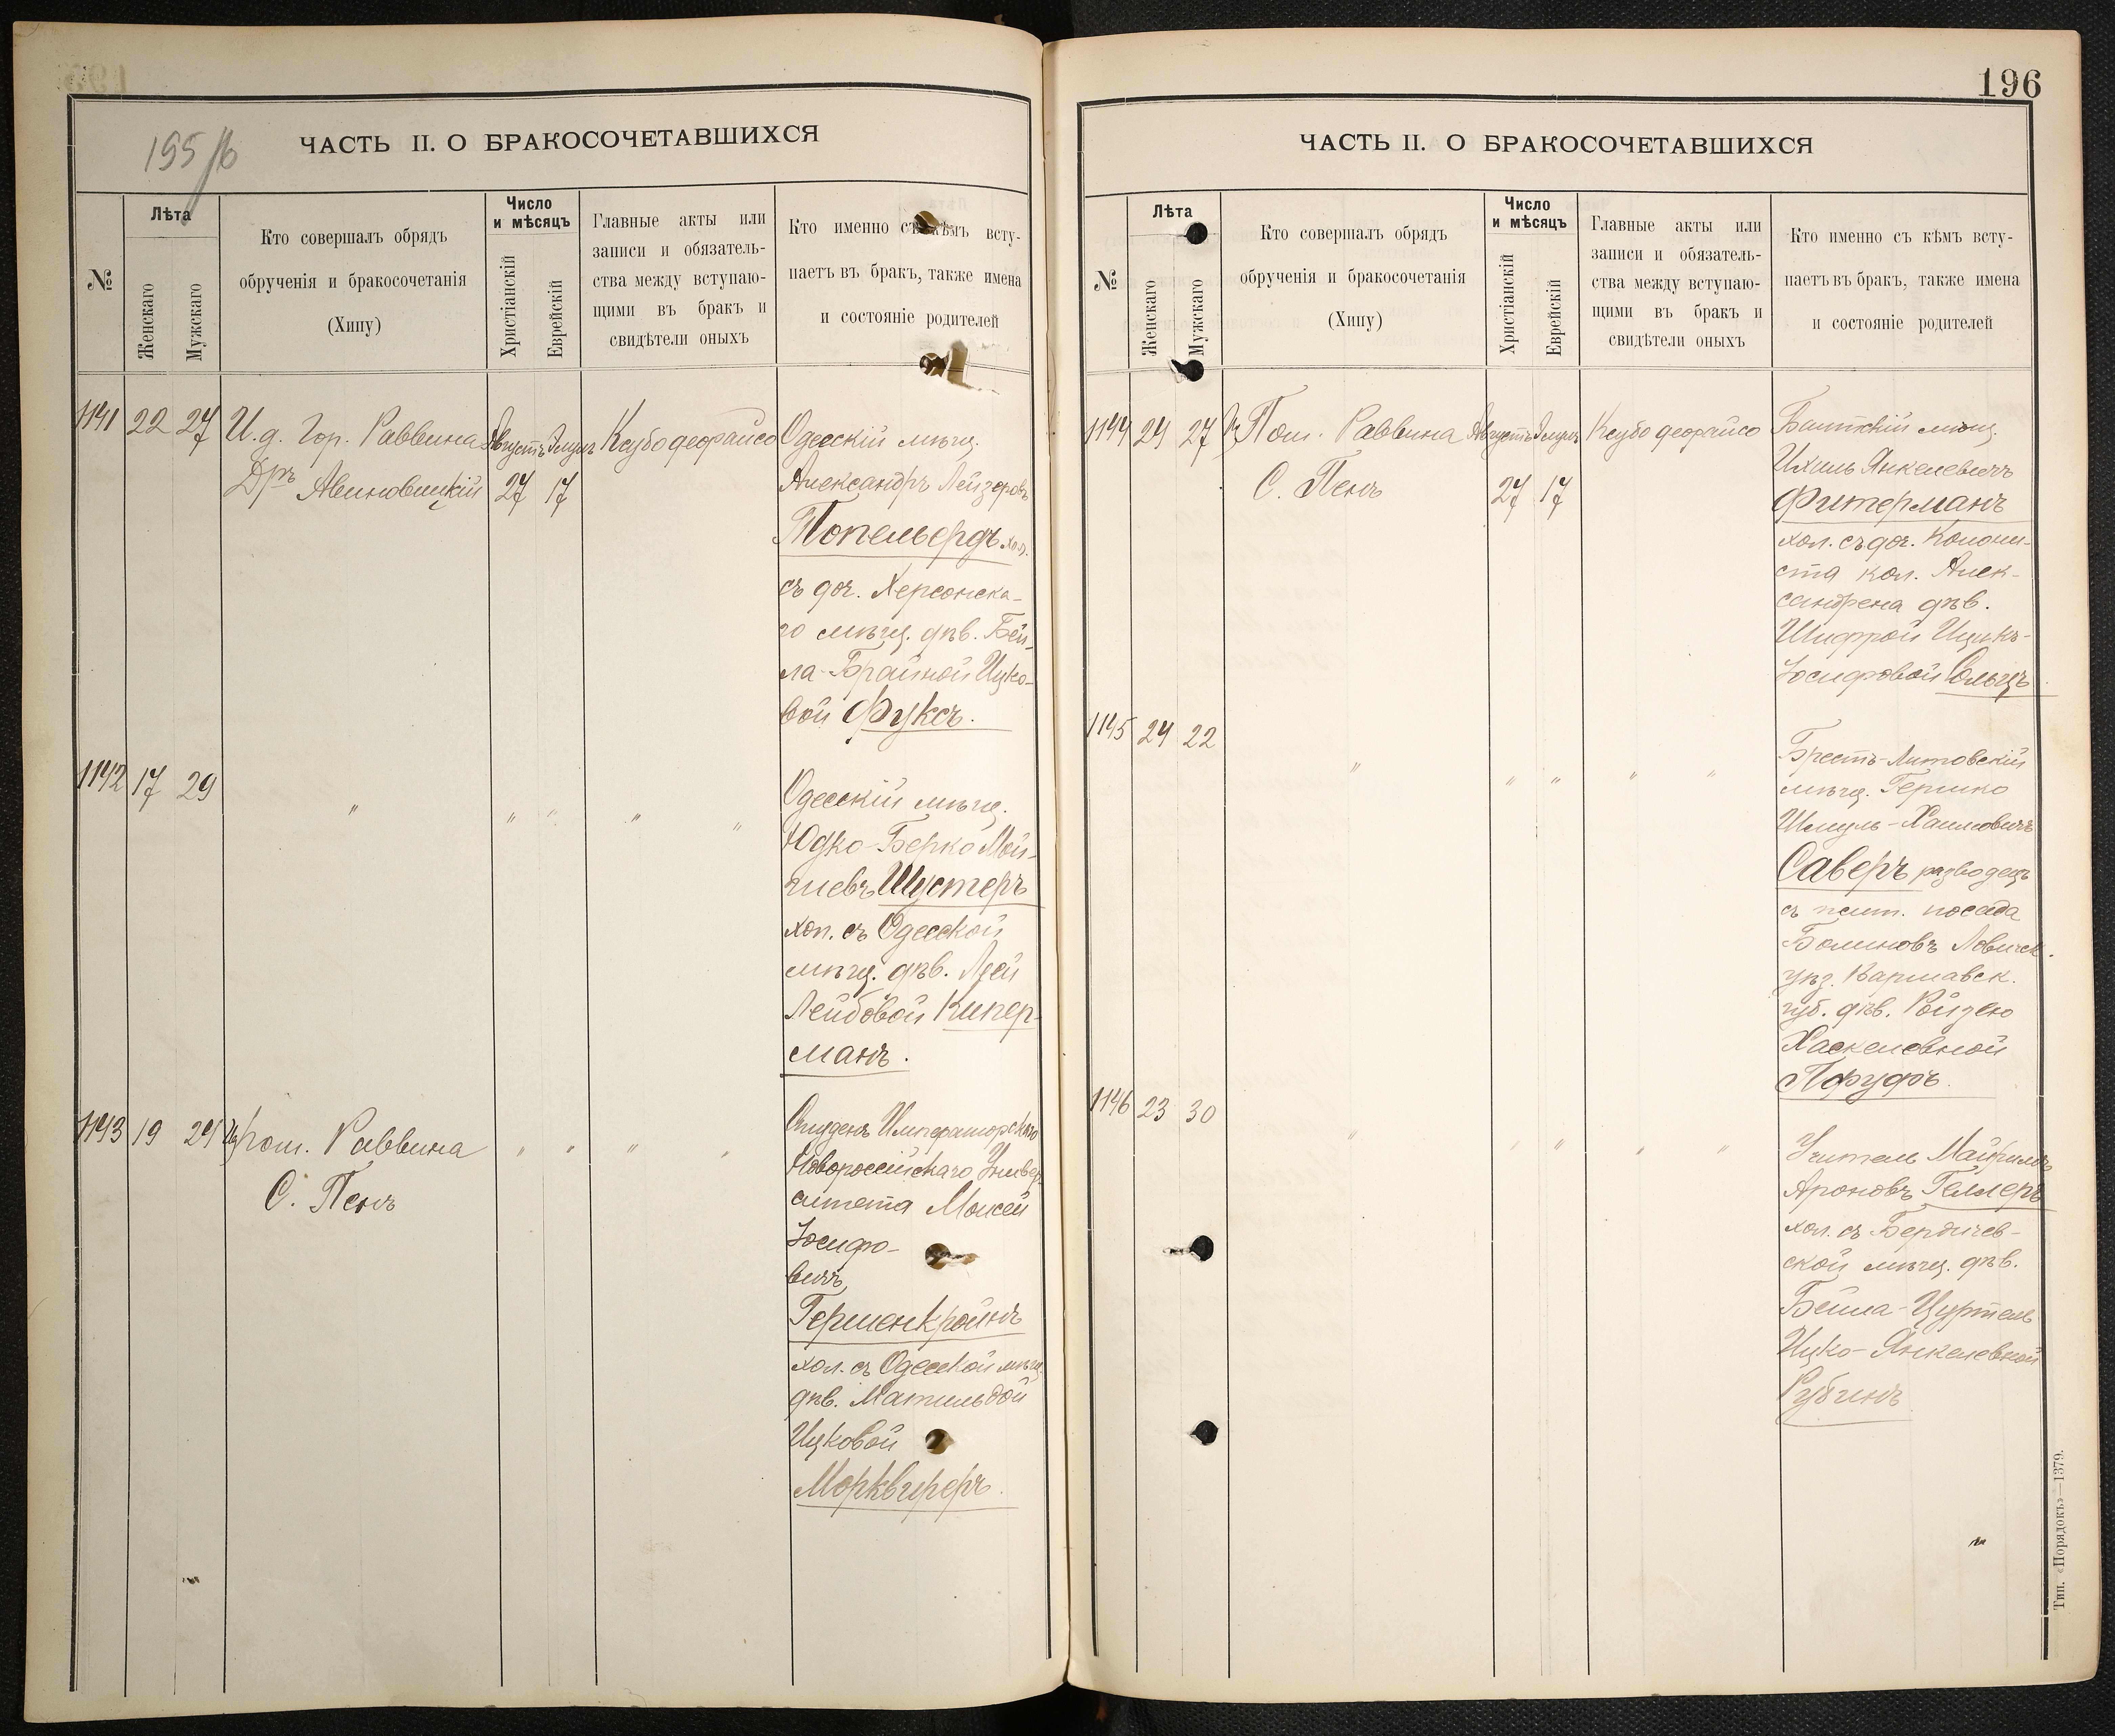 195/б
ЧАСТЬ II. О БРАКОСОЧЕТАВШИХСЯ
№
Лѣта
Женскаго
Мужскаго
Кто совершалъ обрядъ
обрученія и бракосочетанія
(Хипу)
Число
и мѣсяцъ
Христіанскій
Еврейскій
Главные акты или
записи и обязатель-
ства между вступаю-
щими въ бракъ и
свидѣтели оныхъ
Кто именно съ кѣмъ всту-
паетъ въ бракъ, также имена
и состояніе родителей
1141 22 27 И.д. Гор. Раввина Августъ Элулъ Ксубо деорайсо
Дръ Авиновицкій 27 17
Одесскій мѣщ.
Александръ Лейзеровъ
Топельбергъ хол.
съ доч. Херсонска-
го мѣщ. дѣв. Бей-
ла-Брайной Ицко-
вой Фуксъ.
1142 17 29 " " " " "
Одесскій мѣщ.
Юдко-Берко Мой-
шевъ Шустеръ
хол. съ Одесской
мѣщ. дѣв. Леей
Лейбовой Кипер-
манъ.
1143 19 24 Пом. Раввина " " " "
С. Пенъ
Студентъ Императорскаго
Новороссійскаго Универ-
ситета Моисей
Іосифо-
вичъ
Гершенкройнъ
хол. съ Одесской мѣщ.
дѣв. Матильдой
Ицковой
196
ЧАСТЬ II. О БРАКОСОЧЕТАВШИХСЯ
№
Лѣта
Женскаго
Мужскаго
Кто совершалъ обрядъ
обрученія и бракосочетанія
(Хипу)
Число
и мѣсяцъ
Христіанскій
Еврейскій
Главные акты или
записи и обязатель-
ства между вступаю-
щими въ бракъ и
свидѣтели оныхъ
Кто именно съ кѣмъ всту-
паетъ въ бракъ, также имена
и состояніе родителей
1144 24 27 Пом. Раввина Августъ Элулъ Ксубо деорайсо
С. Пенъ 27 17
Балтскій мѣщ.
Ихиль Янкелевичъ
Фитерманъ
хол. съ доч. Колони-
ста кол. Алек-
сандрена дѣв.
Шифрой Ицикъ-
Іосифовой
1145 24 22 " " " " "
Брестъ-Литовскій
мѣщ. Гершко
Шмуль-Хаимовичъ
Саверъ разводецъ
съ жит. посада
Болимовъ Ловичск.
уѣз. Варшавск.
губ. дѣв. Ройзею
Хаскелевной
1146 23 30 " " " " "
Учитель
Ароновъ Геллеръ
хол. съ Бердичев-
ской мѣщ. дѣв.
Бейла-Цуртель
Ицко-Янкелевной
Рубчикъ
Тип. «Порядокъ»—1379.